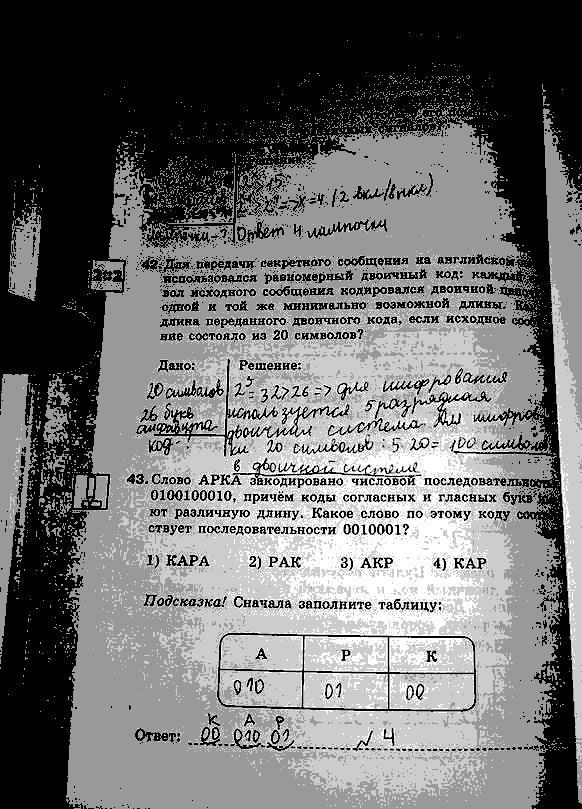 => x=4 (2 вкл/выкл)
Ответ 4 лампочки
202
42. Для передачи секретного сообщения на английском
использовался равномерный двоичный код: каждый
вол исходного сообщения кодировался двоичной
одной и той же минимально возможной длины.
длина переданного двоичного кода, если исходное
ние состояло из 20 символов?
Дано: Решение:
20 символов 2⁵=32>26 => для шифрования
26 букв используется 5 разрядная
алфавита двоичная система. Для шифров
код ки 20 символов : 5·20= 100 символов
в двоичной системе
43. Слово АРКА закодировано числовой последовательност
0100100010, причём коды согласных и гласных букв
ют различную длину. Какое слово по этому коду соот
ствует последовательности 0010001?
1) КАРА 2) РАК 3) АКР 4) КАР
Подсказка! Сначала заполните таблицу:
А Р К
010 01 00
К А Р
Ответ: 00 010 01 √ 4